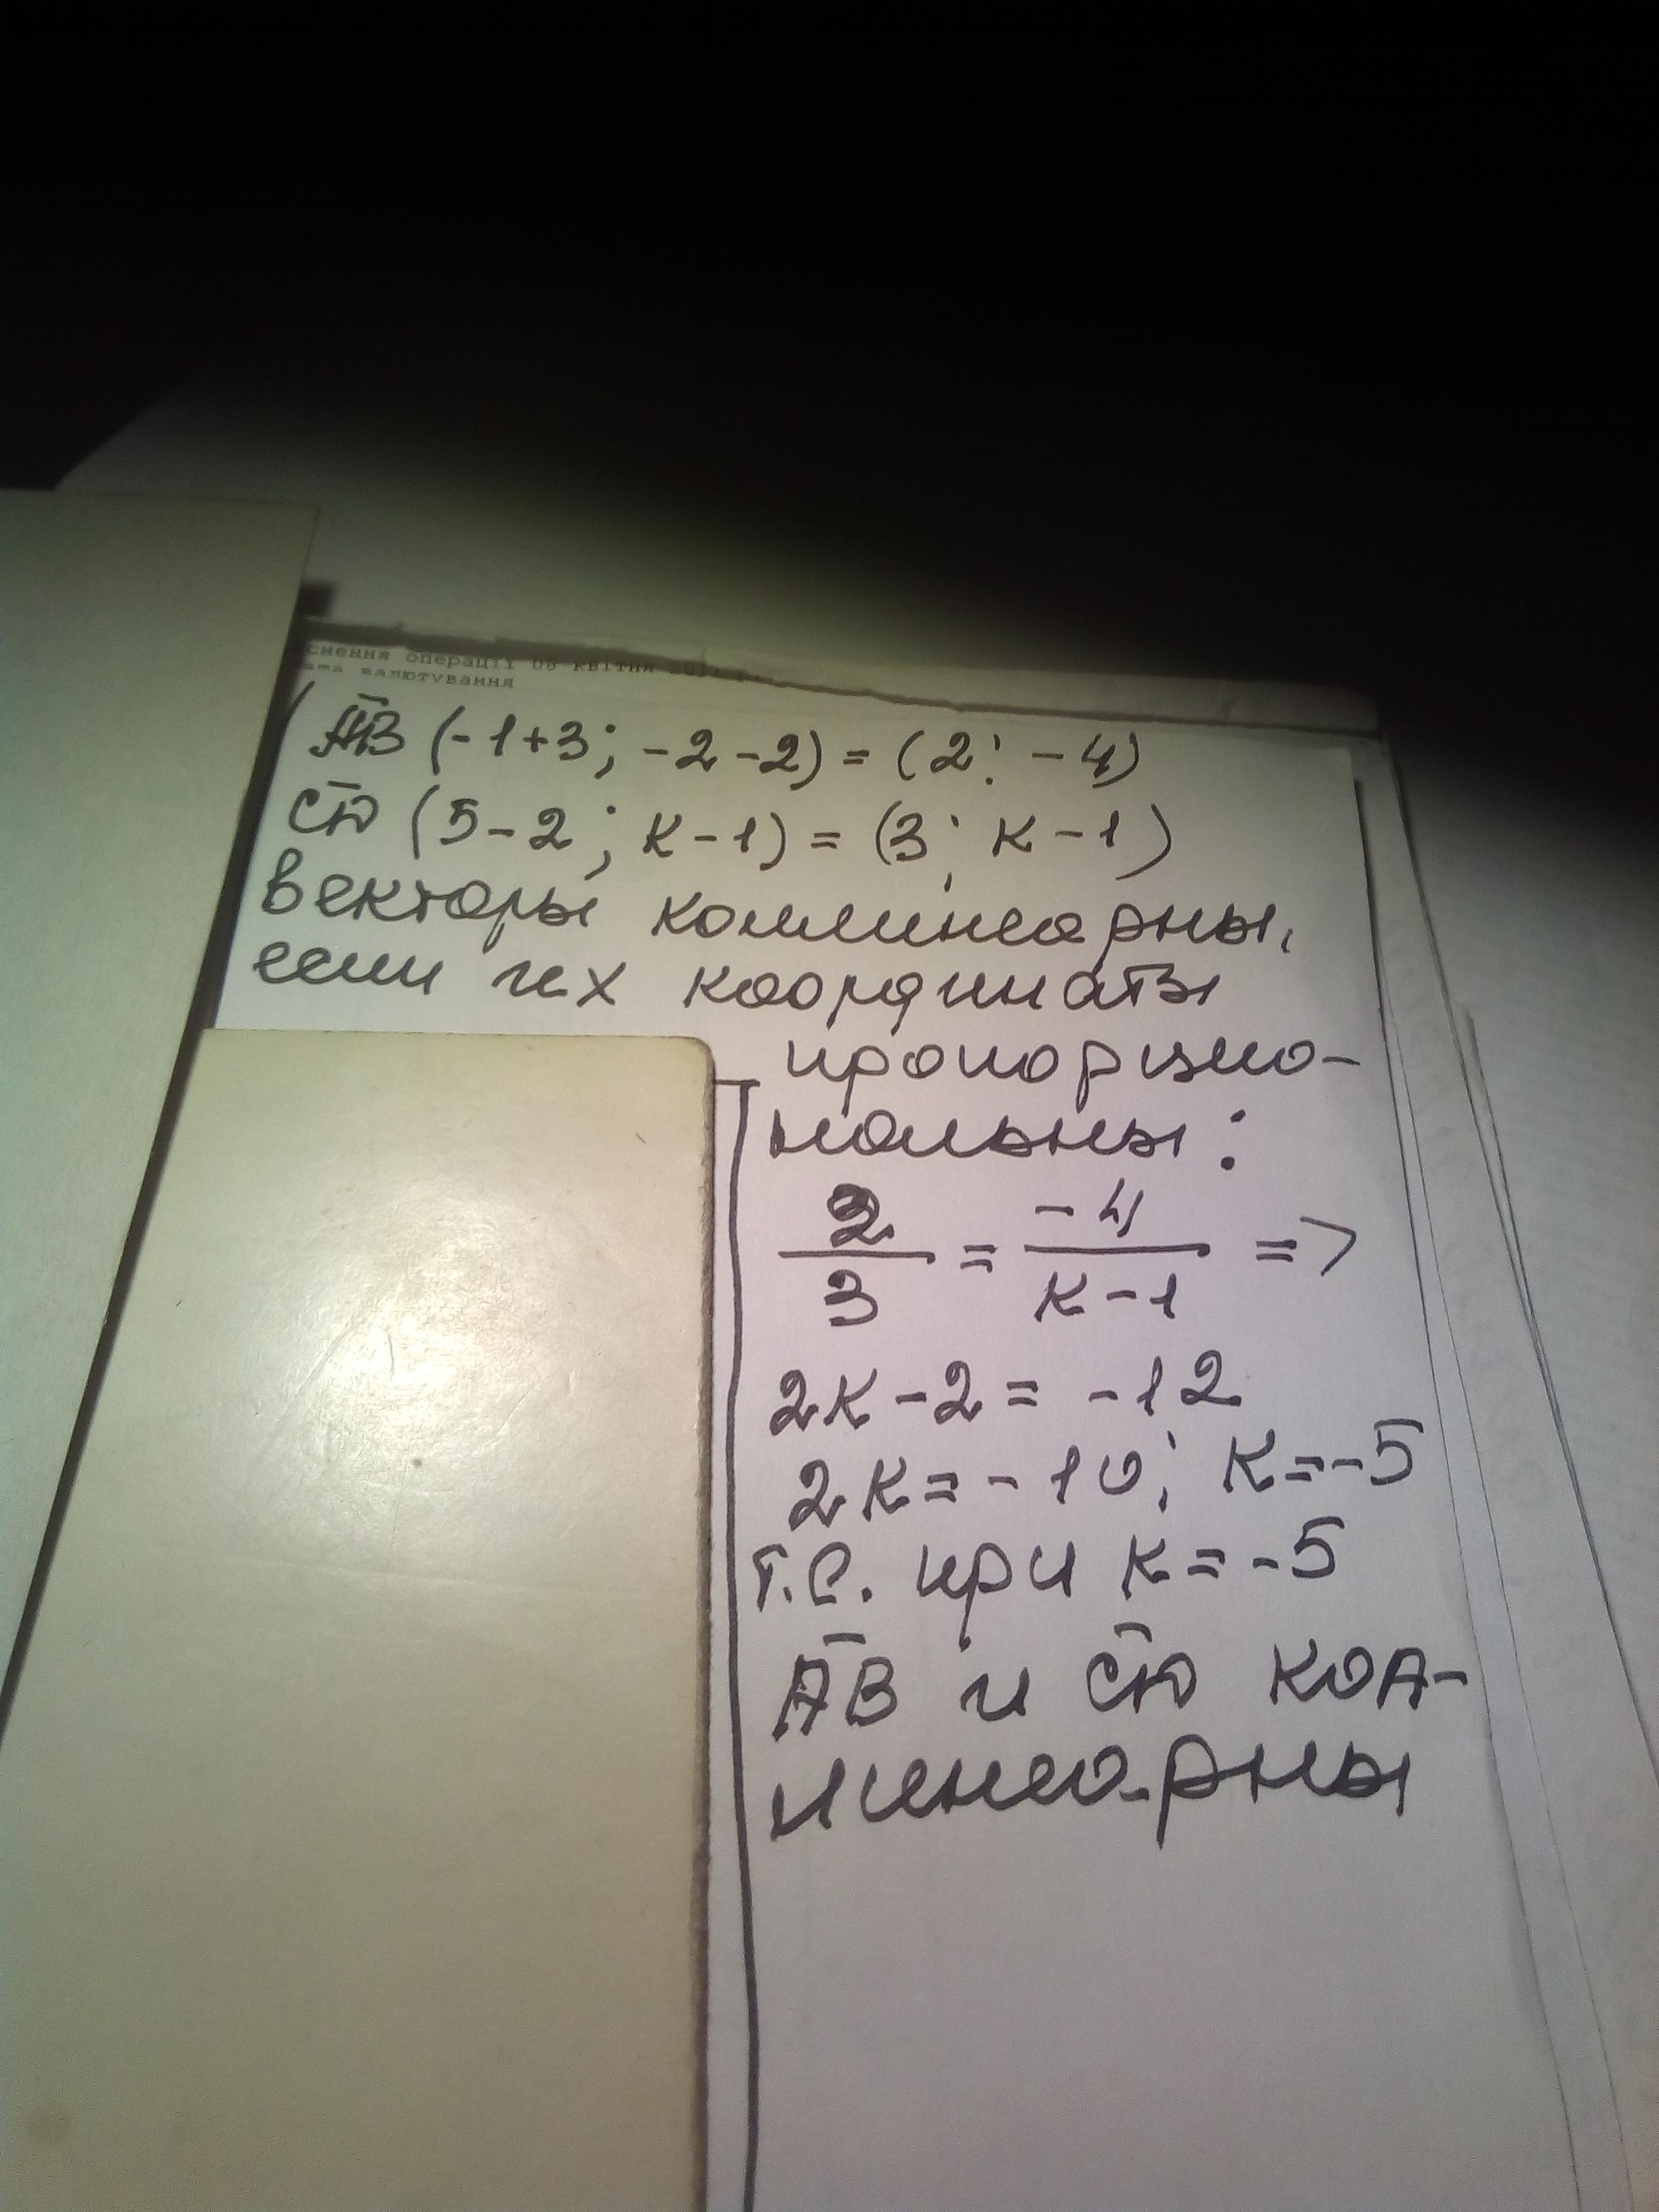 снення операції 08 квітня
валютування
АВ (-1+3; -2-2) = (2; -4)
СD (5-2; к-1) = (3; к-1)
векторы коллинеарны,
если их координаты
пропорцио-
нальны:
2/3 = -4/к-1 =>
2к-2 = -12
2к = -10; к=-5
т.е. при к = -5
АВ и СD кол-
линеарны